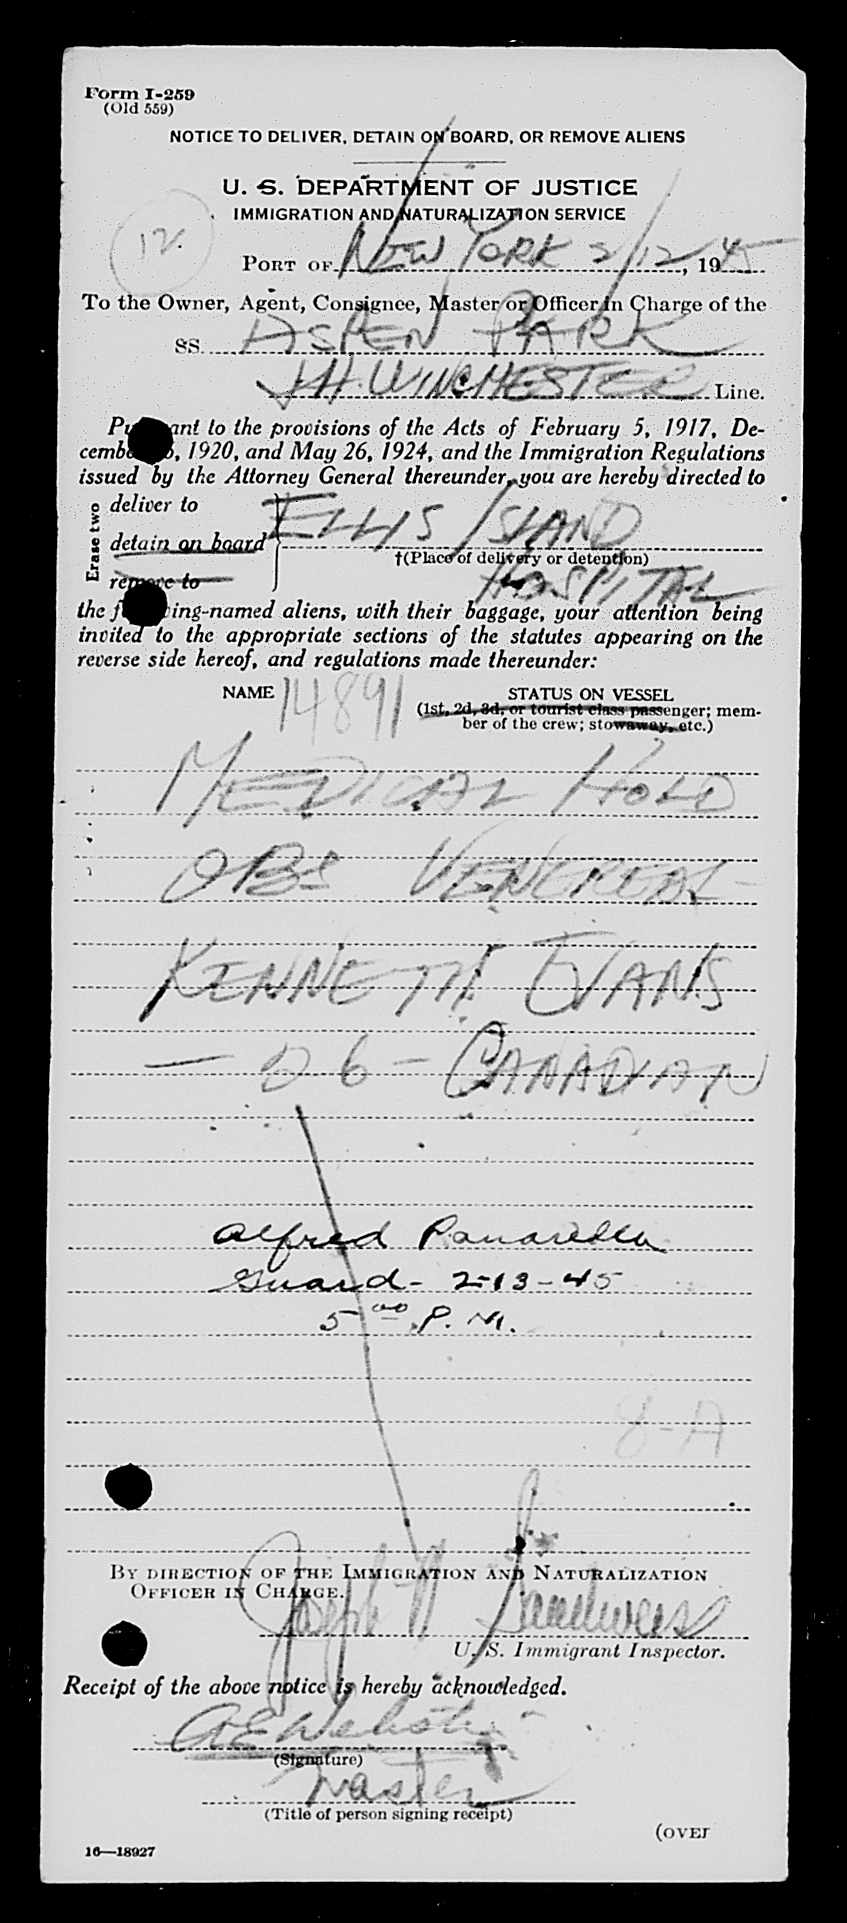 Form I-259
(Old 559)
NOTICE TO DELIVER, DETAIN ON BOARD, OR REMOVE ALIENS
U. S. DEPARTMENT OF JUSTICE
IMMIGRATION AND NATURALIZATION SERVICE
12.
PORT OF NEW YORK 2/12, 1945
To the Owner, Agent, Consignee, Master or Officer in Charge of the
SS. ASPEN PARK
J.H. WINCHESTER Line.
Pursuant to the provisions of the Acts of February 5, 1917, De-
cember , 1920, and May 26, 1924, and the Immigration Regulations
issued by the Attorney General thereunder, you are hereby directed to
Erase two
deliver to
detain on board
remove to
ELLIS ISLAND
†(Place of delivery or detention)
HOSPITAL
the following-named aliens, with their baggage, your attention being
invited to the appropriate sections of the statutes appearing on the
reverse side hereof, and regulations made thereunder:
NAME 14891 STATUS ON VESSEL
(1st, 2d, 3d, or tourist class passenger; mem-
ber of the crew; stowaway, etc.)
MEDICAL HOLD
OBS VENEREAL
KENNETH EVANS
— 26 — CANADIAN
Alfred Panarella
Guard - 2-13-45
5 00 P. M.
8-A
BY DIRECTION OF THE IMMIGRATION AND NATURALIZATION
OFFICER IN CHARGE.
Joseph W
U. S. Immigrant Inspector.
Receipt of the above notice is hereby acknowledged.
A E Webster
(Signature)
Master
(Title of person signing receipt)
(OVER
16—18927